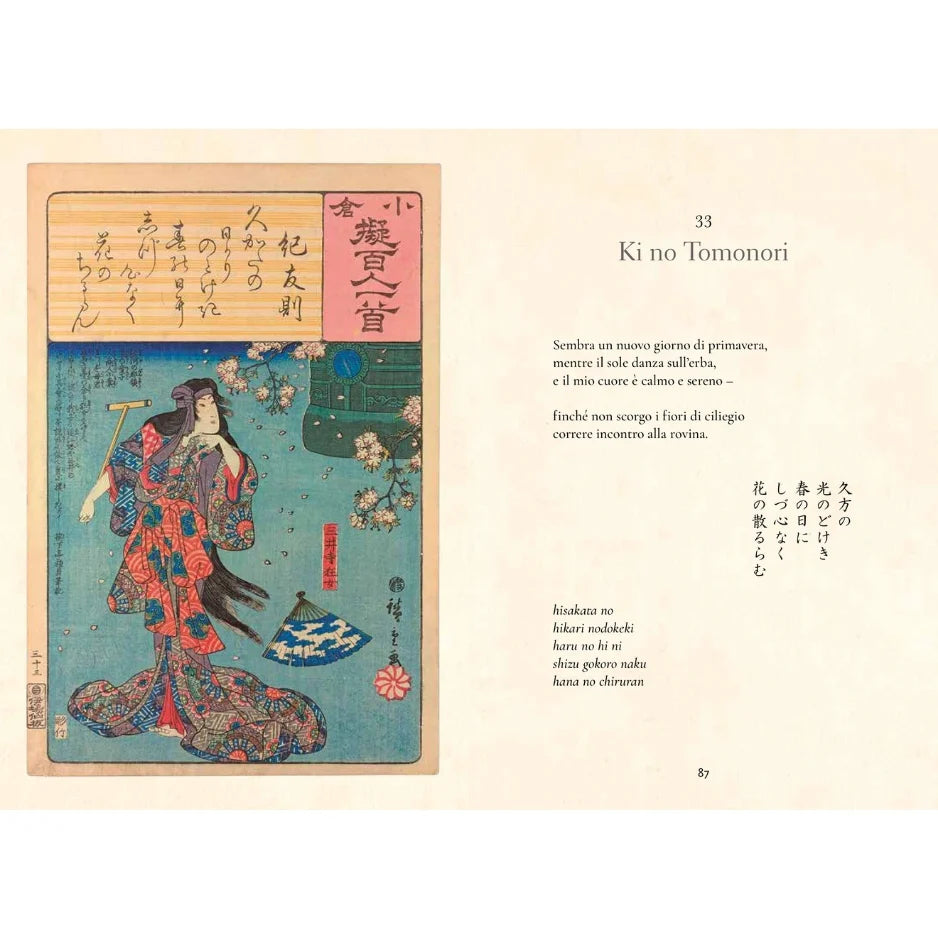 小倉
擬百人一首
紀友則
久かたの
日かり
のとけき
春の日に
しづ心なく
花の
ちるらん
三井寺狂女
廣重画
三十三
33
Ki no Tomonori
Sembra un nuovo giorno di primavera,
mentre il sole danza sull’erba,
e il mio cuore è calmo e sereno –
finché non scorgo i fiori di ciliegio
correre incontro alla rovina.
久方の
光のどけき
春の日に
しづ心なく
花の散るらむ
hisakata no
hikari nodokeki
haru no hi ni
shizu gokoro naku
hana no chiruran
87